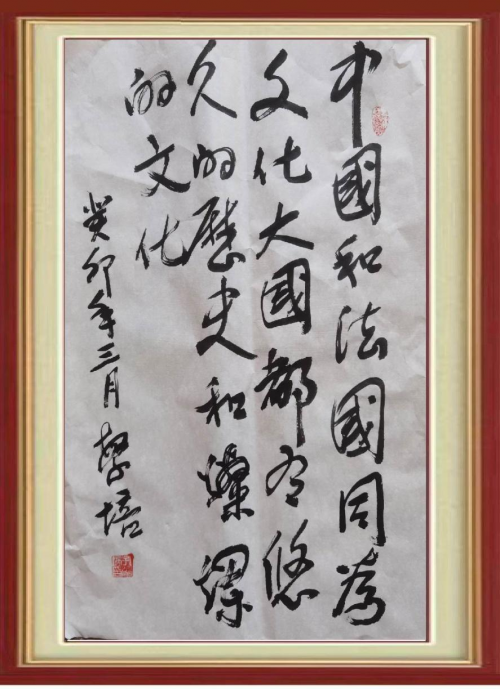 中國和法國同為
文化大國都有悠
久的歷史和燦爛
的文化
癸卯年三月 培